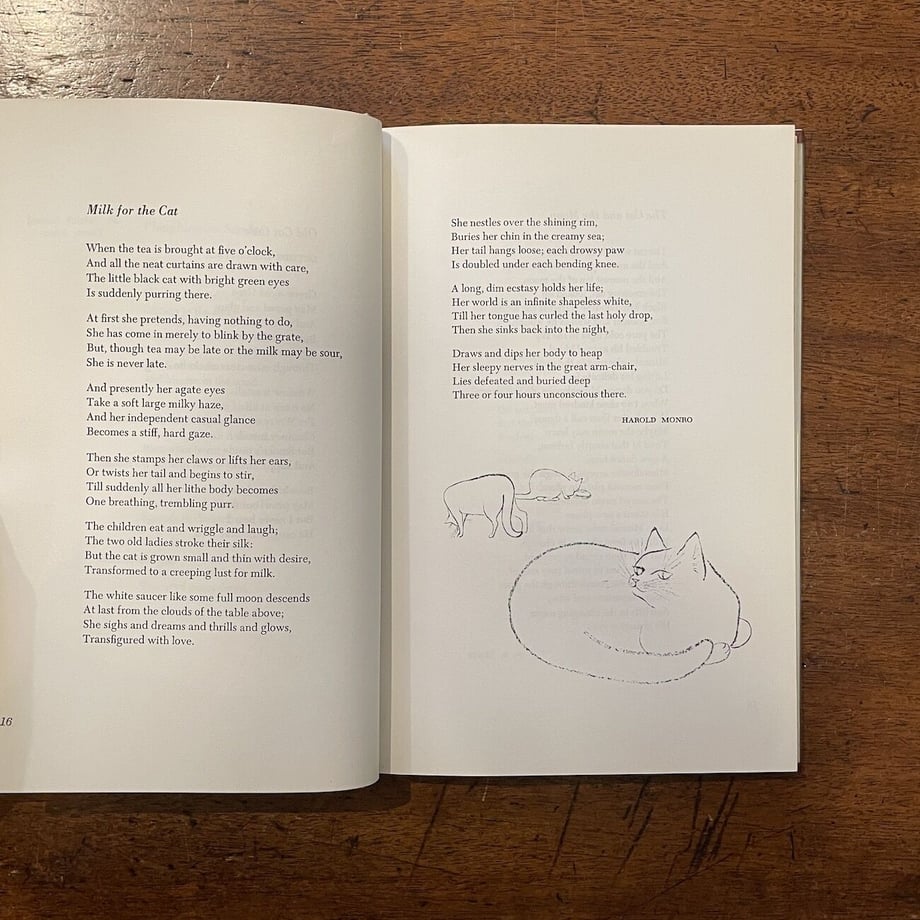 Milk for the Cat
When the tea is brought at five o'clock,
And all the neat curtains are drawn with care,
The little black cat with bright green eyes
Is suddenly purring there.
At first she pretends, having nothing to do,
She has come in merely to blink by the grate,
But, though tea may be late or the milk may be sour,
She is never late.
And presently her agate eyes
Take a soft large milky haze,
And her independent casual glance
Becomes a stiff, hard gaze.
Then she stamps her claws or lifts her ears,
Or twists her tail and begins to stir,
Till suddenly all her lithe body becomes
One breathing, trembling purr.
The children eat and wriggle and laugh;
The two old ladies stroke their silk:
But the cat is grown small and thin with desire,
Transformed to a creeping lust for milk.
The white saucer like some full moon descends
At last from the clouds of the table above;
She sighs and dreams and thrills and glows,
Transfigured with love.
16
She nestles over the shining rim,
Buries her chin in the creamy sea;
Her tail hangs loose; each drowsy paw
Is doubled under each bending knee.
A long, dim ecstasy holds her life;
Her world is an infinite shapeless white,
Till her tongue has curled the last holy drop,
Then she sinks back into the night,
Draws and dips her body to heap
Her sleepy nerves in the great arm-chair,
Lies defeated and buried deep
Three or four hours unconscious there.
HAROLD MONRO